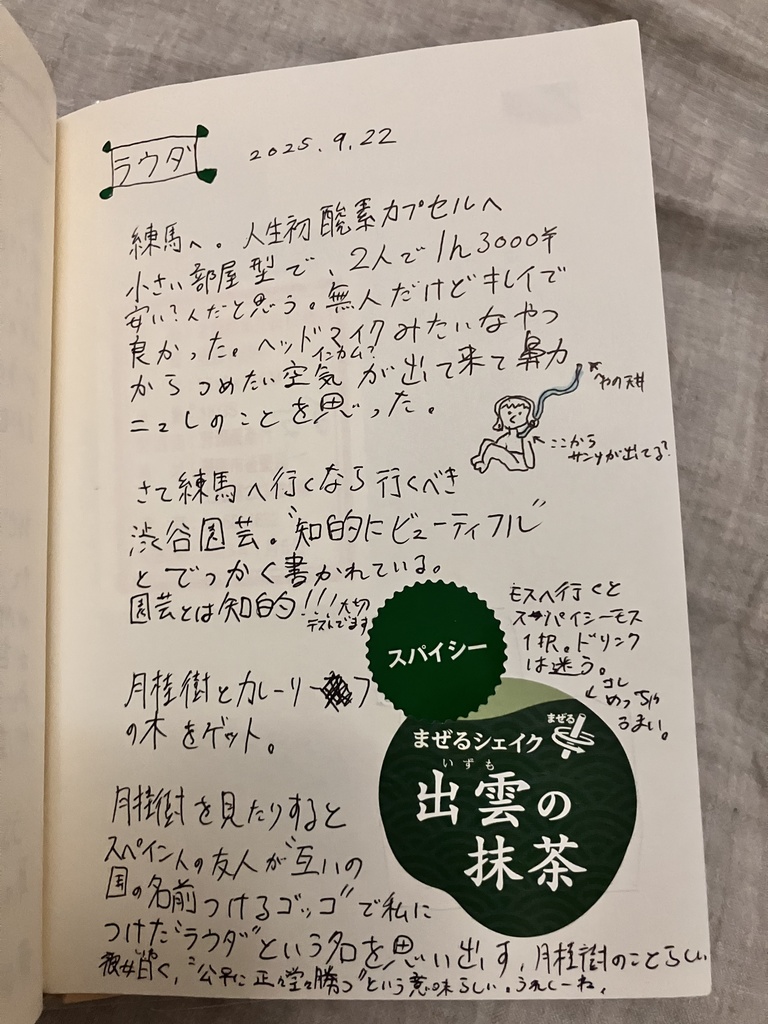 ラウダ 2025.9.22
練馬へ。人生初 酸素カプセルへ
小さい部屋型で、2人で1h3000￥
安い?んだと思う。無人だけどキレイで
良かった。ヘッドマイクみたいなやつ
インカム?
からつめたい空気が出て来て鼻カ
ニュレのことを思った。
ここから
サンソが出てる?
さて練馬へ行くなら行くべき
渋谷園芸。"知的にビューティフル"
とでっかく書かれている。
園芸とは知的!!!大切
テストでます
モスへ行くと
スパイシーモス
1択。ドリンク
は迷う。
コレ
めっちゃ
うまい。
スパイシー
月桂樹とカレーリーフ
の木をゲット。
まぜる
まぜるシェイク
いずも
出雲の
抹茶
月桂樹を見たりすると
スペイン人の友人が"互いの
国の名前つけるゴッコ"で私に
つけた"ラウダ"という名を思い出す,月桂樹のことらしい
彼女曰く,"公平に正々堂々勝つ"という意味らしい。うれしーね,